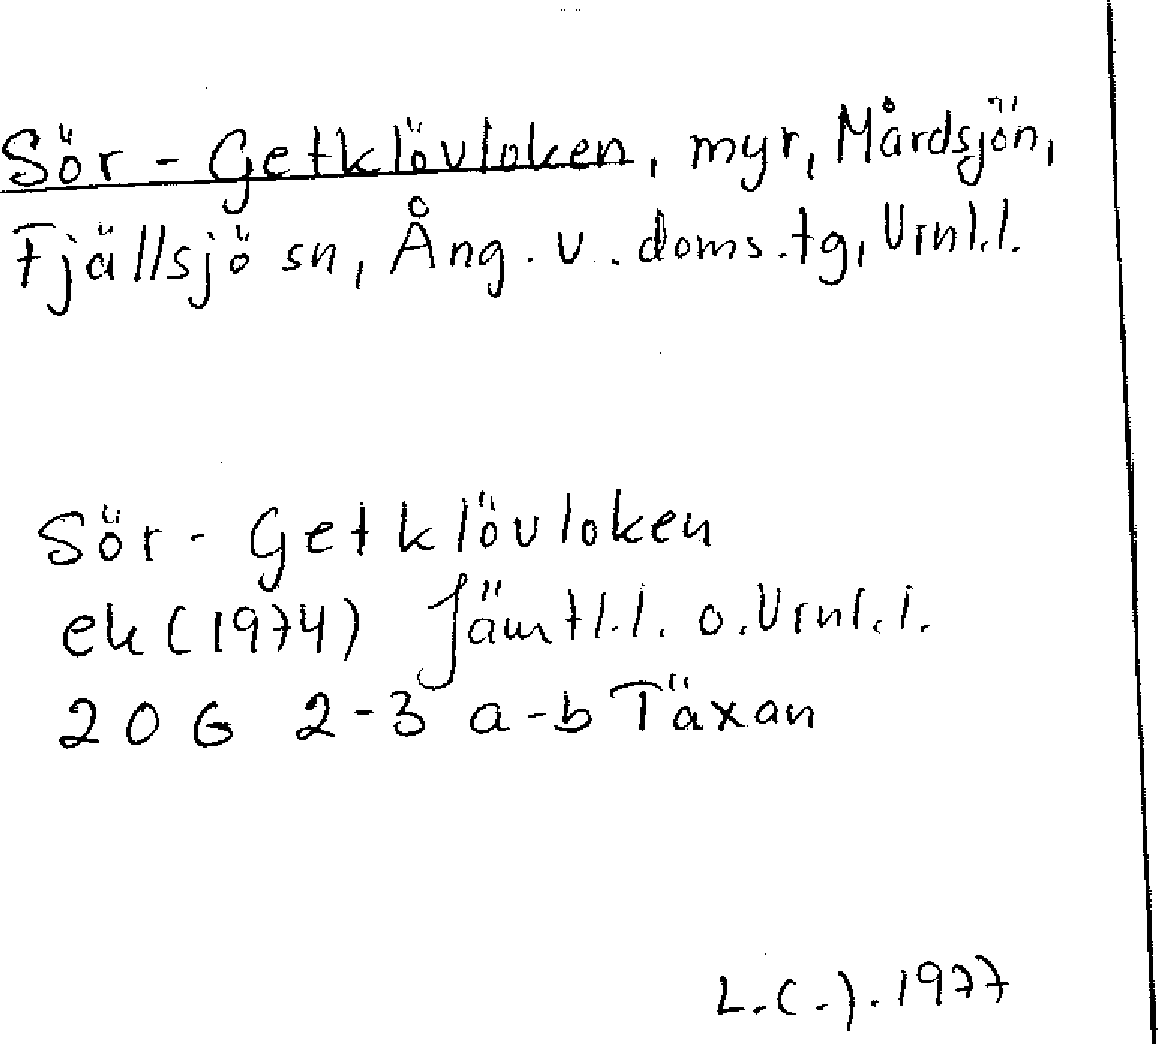 Sör-Getklövloken, myr, Mårdsjön,
Fjällsjö sn, Ång. v. doms.tg, Vrnl.l.
Sör-Getklövloken
ek (1974) Jämtl.l. o. Vrnl.l.
20G 2-3 a-b Täxan
L.C-J. 1977